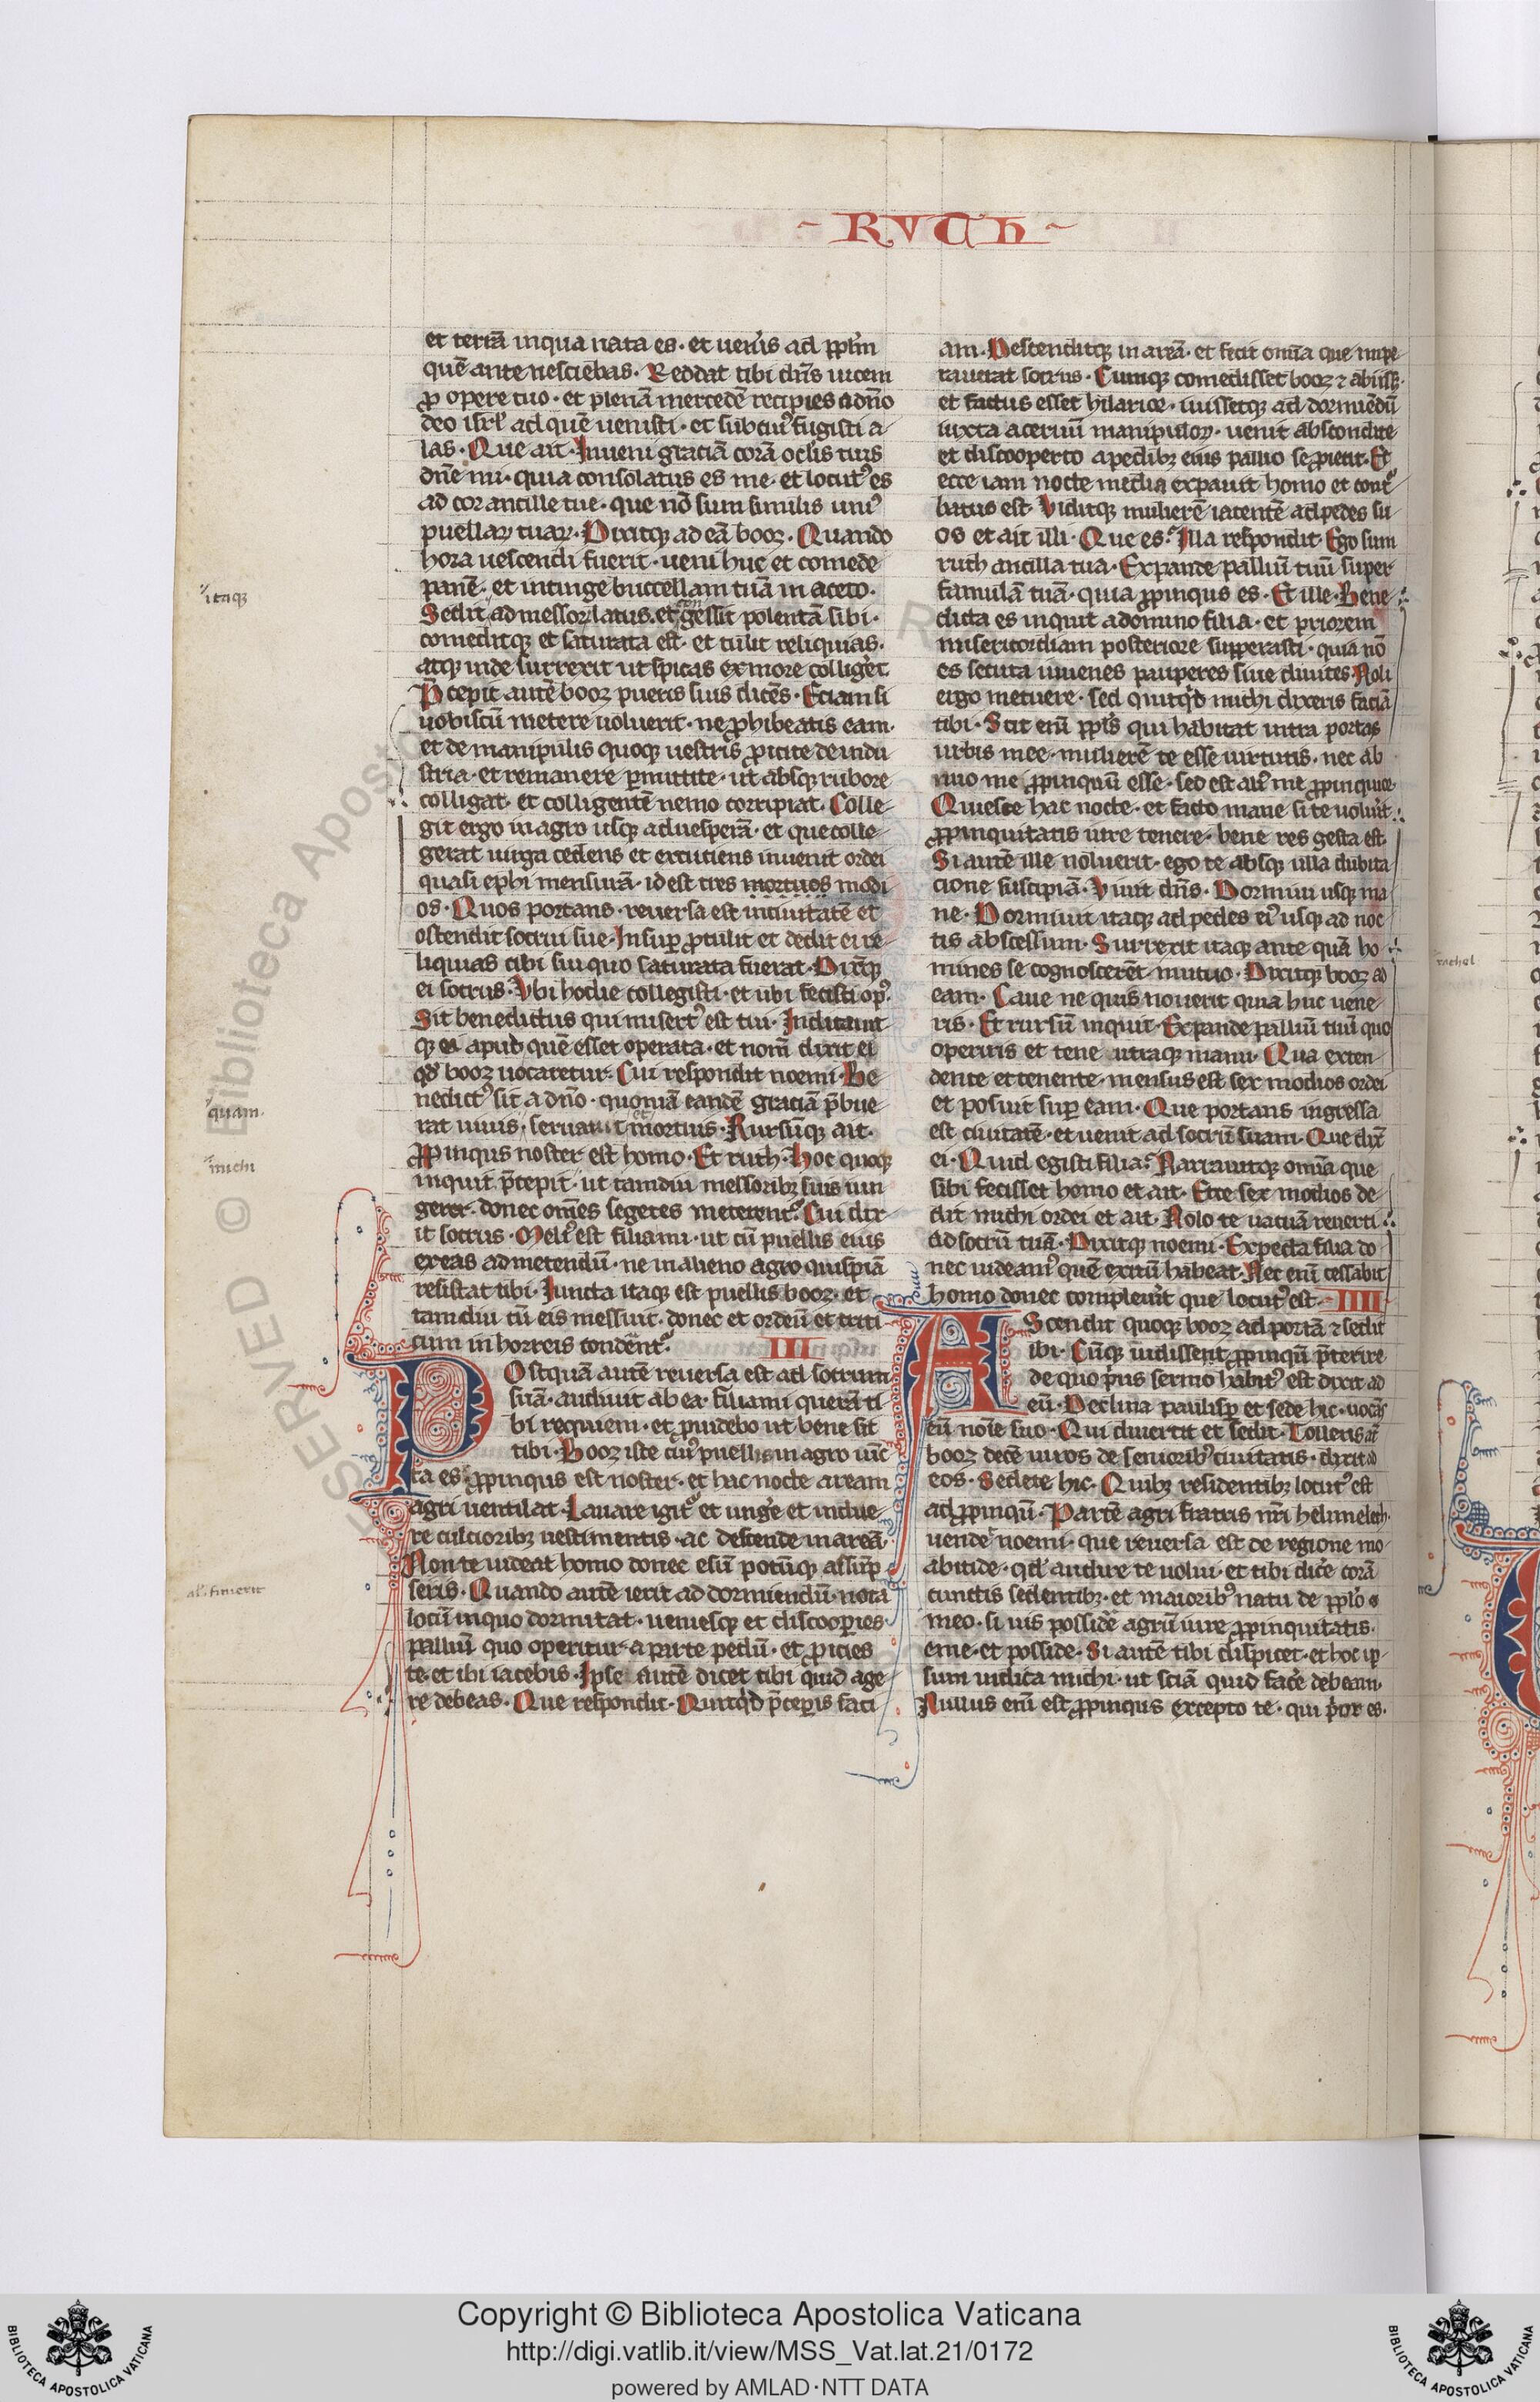 RVTH
et terrã in qua nata es · et uenis ad pp̃lm
quẽ ante nesciebas · Reddat tibi dñs uicem
ꝓ opere tuo · et plenã mercedẽ recipies a dño
deo isrl̃ ad quẽ uenisti · et sub cuiꝰ fugisti a
las · Que ait · Inueni graciã corã oculis tuis
dñe mi · quia consolatus es me · et locutꝰ es
ad cor ancille tue · que nõ sum similis uniꝰ
puellaꝝ tuaꝝ · Dixitqꝫ ad eã booz · Quando
hora uescendi fuerit · ueni huc et comede
panẽ · et intinge buccellam tuã in aceto ·
Sedit ad messoꝝ latus · et gessit polentã sibi ·
comeditqꝫ et saturata est · et tulit reliquias ·
atqꝫ inde surrexit ut spicas ex more colligeret
P̃cepit autẽ booz pueris suis dicẽs · Eciam si
uobiscũ metere uoluerit · ne ꝓhibeatis eam ·
et de manipulis quoqꝫ uestris ꝓicite de indu
stria · et remanere ꝑmittite · ut absqꝫ rubore
colligat · et colligentẽ nemo corripiat · Colle
git ergo in agro usqꝫ ad uesperã · et que colle
gerat uirga cedens et excutiens inuenit ordei
quasi ephi mensurã · id est tres mortuos modi
os · Quos portans · reuersa est in ciuitatẽ et
ostendit socrui sue · Insuꝑ ꝓtulit et dedit ei re
liquias cibi sui quo saturata fuerat · Dixitqꝫ
ei socrus · Vbi hodie collegisti · et ubi fecisti opꝰ
Sit benedictus qui misertꝰ est tui · Indicauit
qꝫ ei apud quẽ esset operata · et nom̃ dixit ei
qd̃ booz uocaretur · Cui respondit noemi · Be
nedictꝰ sit a dño · quoniã eandẽ graciã p̃bue
rat uiuis · seruauit et mortuis · Rursũqꝫ ait ·
ꝓpinqus noster est homo · Et ruth · Hoc quoqꝫ
inquit p̃cepit · ut tamdiu messoribꝫ suis iun
gerer · donec om̃es segetes meterent᷑ · Cui dix
it socrus · Meliꝰ est filia mi · ut cũ puellis eius
exeas ad metendũ · ne in alieno agro quispiã
resistat tibi · Iuncta itaqꝫ est puellis booz · et
tamdiu cũ eis messuit · donec et ordeũ et triti
cum in horreis conderẽt᷑ · III
POstquã autẽ reuersa est ad socrum
suã · audiuit ab ea · filia mi querã ti
bi requiem · et ꝓuidebo ut bene sit
tibi · Booz iste cuiꝰ puellis in agro iũc
ta es · ꝓpinqus est noster · et hac nocte aream
agri uentilat · Lauare igit᷑ et ungere et indue
re culcioribꝫ uestimentis · ac descende in areã ·
Non te uideat homo donec esũ potũqꝫ assũp
seris · Quando autẽ ierit ad dormiendũ · nota
locũ in quo dormitat · ueniesqꝫ et discooperies
palliũ quo operitur a parte pedũ · et ꝓicies
te · et ibi iacebis · Ipse autẽ dicet tibi quid age
re debeas · Que respondit · Quitqd̃ p̃ceperis faci
itaqꝫ
quam ·
michi
al̃ · finierit
am · Descenditqꝫ in areã · et fecit omĩa que impe
rauerat socrus · Cumqꝫ comedisset booz ⁊ bibissꝫ ·
et factus esset hilarior · iuissetqꝫ ad dormiẽdũ
iuxta aceruũ manipuloꝝ · uenit abscondite
et discooperto a pedibꝫ eius pallio se ꝓiecit · Et
ecce iam nocte media expauit homo et cont᷑
batus est · Viditqꝫ mulierẽ iacentẽ ad pedes su
os et ait illi · Que es · Illa respondit · Ego sum
ruth ancilla tua · Expande palliũ tuũ super
famulã tuã · quia ꝓpinqus es · Et ille · Bene
dicta es inquit a domino filia · et priorem
misericordiam posteriore supperasti · quia nõ
es secuta iuuenes pauperes siue diuites · Noli
ergo metuere · sed quitqd̃ michi dixeris faciã
tibi · Scit enĩ pp̃ls qui habitat intra portas
urbis mee · mulierẽ te esse uirtutis · nec ab
nuo me ꝓpinquũ esse · sed est aliꝰ me ꝓpinquior
Quiesce hac nocte · et facto mane si te uoluĩt
ꝓpinquitatis iure tenere · bene res gesta est ·
Si autẽ ille noluerit · ego te absqꝫ ulla dubita
cione suscipiã · Viuit dñs · Dormiui usqꝫ ma
ne · Dormiuit itaqꝫ ad pedes eiꝰ usqꝫ ad noc
tis abscessum · Surrexit itaqꝫ ante quã ho
mines se cognoscerẽt mutuo · Dixitqꝫ booz ad
eam · Caue ne quis nouerit quia huc uene
ris · Et rursũ inquit · Expande palliũ tuũ quo
operiris et tene utraqꝫ manu · Qua exten
dente et tenente · mensus est sex modios ordei
et posuit suꝑ eam · Que portans ingressa
est ciuitatẽ · et uenit ad socrũ suam · Que dix̃
ei · Quid egisti filia · Narrauitqꝫ omĩa que
sibi fecisset homo et ait · Ecce sex modios de
dit michi ordei et ait · Nolo te uacuã reuerti
ad socrũ tuã · Dixitqꝫ noemi · Expecta filia do
nec uideamꝰ quẽ exitũ habeat · Nec enĩ cessabit
homo donec compleuit que locutꝰ est · IIII
AScendit quoqꝫ booz ad portã ⁊ sedit
ibi · Cũqꝫ uidisset ꝓpinqũ p̃terire
de quo prius sermo habitꝰ est dixit ad
eũ · Declina paulisꝑ et sede hic · uocãs
eũ noĩe suo · Qui diuertit et sedit · Tollens aũt
booz decẽ uiros de senioribꝰ ciuitatis · dixit ad
eos · Sedete hic · Quibꝫ residentibꝫ locutꝰ est
ad ꝓpinqũ · Partẽ agri fratris nr̃i helimelech ·
uendet noemi · que reuersa est de regione mo
abitide · qd̃ audire te uolui · et tibi dicẽ corã
cunctis sedentibꝫ · et maioribꝰ natu de pp̃lo
meo · si uis possidẽ agrũ iure ꝓpinquitatis ·
eme · et posside · Si autẽ tibi displicet · et hoc ip
sum indica michi · ut sciã quid facẽ debeam ·
Nullus enĩ est ꝓpinqus excepto te · qui prior es ·
rachel
Copyright © Biblioteca Apostolica Vaticana
http://digi.vatlib.it/view/MSS_Vat.lat.21/0172
powered by AMLAD·NTT DATA
BIBLIOTECA APOSTOLICA VATICANA
BIBLIOTECA APOSTOLICA VATICANA